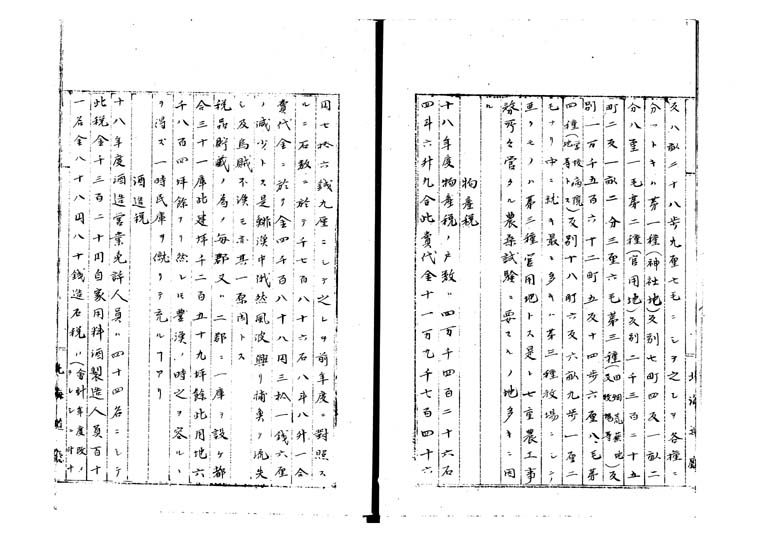 反八畝二十八歩九厘七毛ニシテ之レヲ各種ニ
分ツトキハ第一種(神社地)反別七町四反一畝二
分八厘一毛第二種(官用地)反別二千三百二十五
町二反一畝二分三厘六毛第三種
別一万千五百六十二町五反十四歩六厘八毛第
四種反別十八町六反六畝九歩一厘二
毛ナリ中ニ就キ最モ多キハ第三種牧場ニシテ
亜クモノハ第三種官用地トス是レ七重農工事
務所々管タル農桑試験ニ要スルノ地多キニ因
ル
物産税
十八年度物産税ノ戸数ハ四万千四百二十六石
四斗六升九合此賣代金十一万七千七百四十六
円七拾六銭九厘ニシテ之レヲ前年度ニ對照ス
ルニ石数ニ於テ千七百八十六石八斗八升一合
賣代金ニ於テ金四千百八十八円三拾一銭六厘
ノ減少トス是鯡漁中俄然風波興リ捕魚ヲ流失
シ及烏賊不漁モ亦其一原因トス
税品貯蔵ノ為ノ毎郡又ハ二郡ニ一庫ヲ設ケ都
合三十一庫此建坪千二百五十九坪餘此用地六
千八百四坪餘ナリ然レトモ豐漁ノ時之ヲ容ルヽ
ヲ得ズ一時民庫ヲ借リテ充ルヿアリ
酒造税
十八年度酒造営業免許人員ハ四十四名ニシテ
此税金千三百二十円自家用料酒製造人員百十
一名金八十八円八十銭造石税ハ(會計年度改ノ